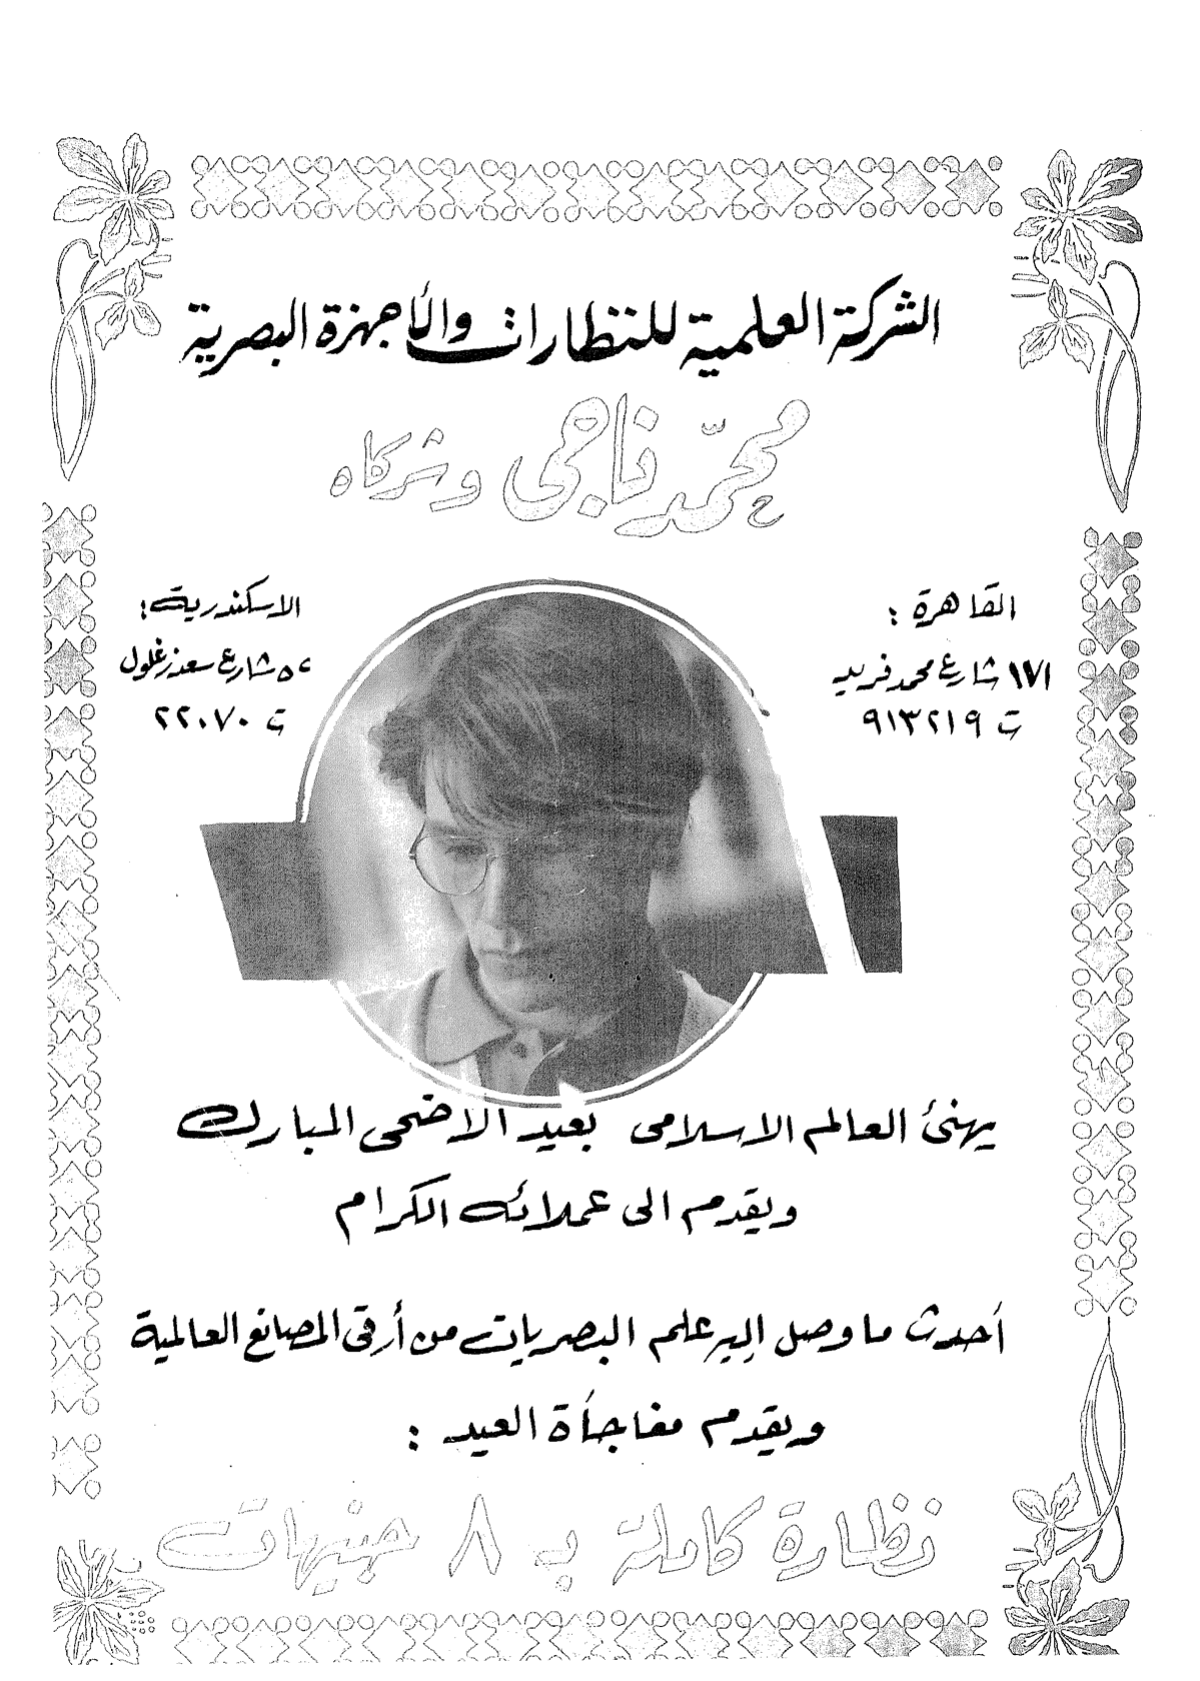 الشركة العلمية للنظارات والأجهزة البصرية
محمد ناجى وشركاه
القاهرة :
١٧١ شارع محمد فريد
ت ٩١٣٢١٩
الاسكندرية :
٥٢ شارع سعد زغلول
ت ٢٢٠٧٠
يهنئ العالم الاسلامى بعيد الاضحى المبارك
ويقدم الى عملائه الكرام
أحدث ما وصل إليه علم البصريات من أرقى المصانع العالمية
ويقدم مفاجأة العيد :
نظارة كاملة بـ ٨ جنيهات